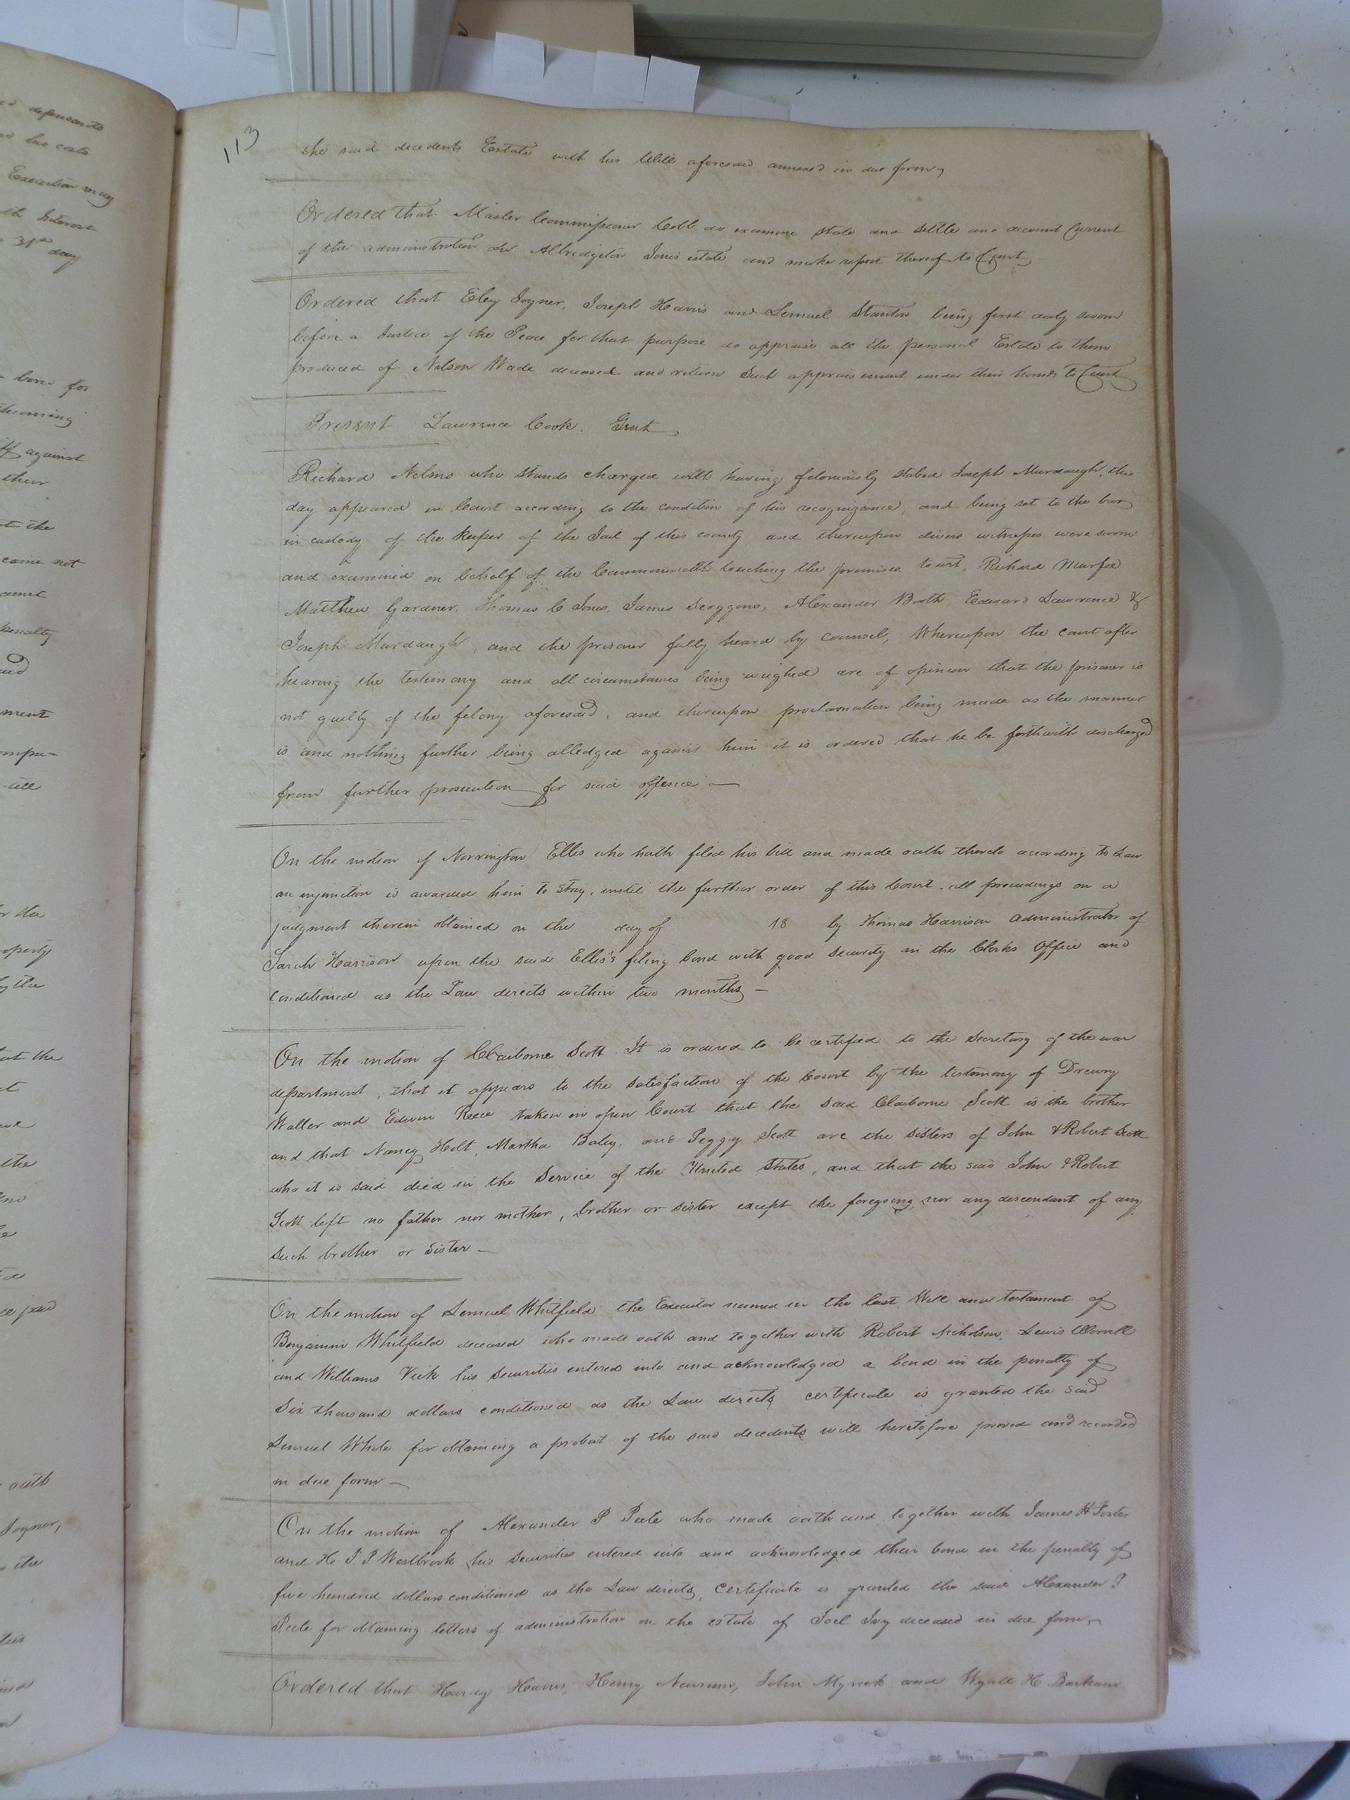 113
the said decedents Estate with his Will aforesaid annexed in due form
Ordered that Master Commissioner Cobb do examine state and settle and account Current
of the administration of Albridgeton Jones estate and make report thereof to Court
Ordered that Eley Joyner, Joseph Harris and Lemuel Stanton being first duly sworn
before a Justice of the Peace for that purpose do appraise all the personal Estate to them
produced of Nelson Wade deceased and return such appraisement under their hands to Court
Present Lawrence Cook. Gent
Richard Nelms who stands charged with having feloniously stabed Joseph Murdaugh, this
day appeared in Court according to the condition of his recognizance, and being set to the bar
in custody of the keeper of the Jail of this county and thereupon divers witnesses were sworn
and examined on behalf of the Commonwealth touching the premises to wit, Richard Murfee
Matthew Gardner, Thomas C Jones, James Scoggins, Alexander Booth, Edward Lawrence &
Joseph Murdaugh, and the prisoner fully heard by counsel, Whereupon the court after
hearing the testimony and all circumstances being weighed are of opinion that the prisoner is
not guilty of the felony aforesaid, and thereupon proclamation being made as the manner
is and nothing further being alledged against him it is ordered that he be forthwith discharged
from further prosecution for said offence —
On the motion of Norrington Ellis who hath filed his bill and made oath thereto according to Law
an injunction is awarded him to stay, until the further order of this Court, all proceedings on a
judgment therein obtained on the day of 18 by Thomas Harrison administrator of
Sarah Harrison upon the said Ellis's filing bond with good security in the Clerks Office and
conditioned as the Law directs within two months —
On the motion of Claiborne Scott It is ordered to be certified to the Secretary of the war
department, that it appears to the satisfaction of the Court by the testimony of Drewry
Waller and Edwin Reese taken in open Court that the said Claiborne Scott is the brother
and that Nancy Holt, Martha Baley, and Peggy Scott are the sisters of John & Robert Scott
who it is said died in the Service of the United States, and that the said John & Robert
Scott left no father nor mother, brother or sister except the foregoing, nor any descendant of any
such brother or sister —
On the motion of Lemuel Whitfield the Executor named in the last Will and testament of
Benjamin Whitfield deceased who made oath and together with Robert Nicholson, Lewis Worrell
and Williams Vick his securities entered into and acknowledged a bond in the penalty of
Six thousand dollars conditioned as the Law directs, certificate is granted the said
Lemuel White for obtaining a probat of the said decedents will heretofore proved and recorded
in due form —
On the motion of Alexander P Peete who made oath and together with James H Foster
and H. J. P Westbrook his securities entered into and acknowledged their bond in the penalty of
five hundred dollars conditioned as the Law directs, Certificate is granted the said Alexander P
Peete for obtaining letters of administration on the estate of Joel Ivy deceased in due form
Ordered that Harvey Harris, Henry Newsum, John Myrick and Wyatt H Barham